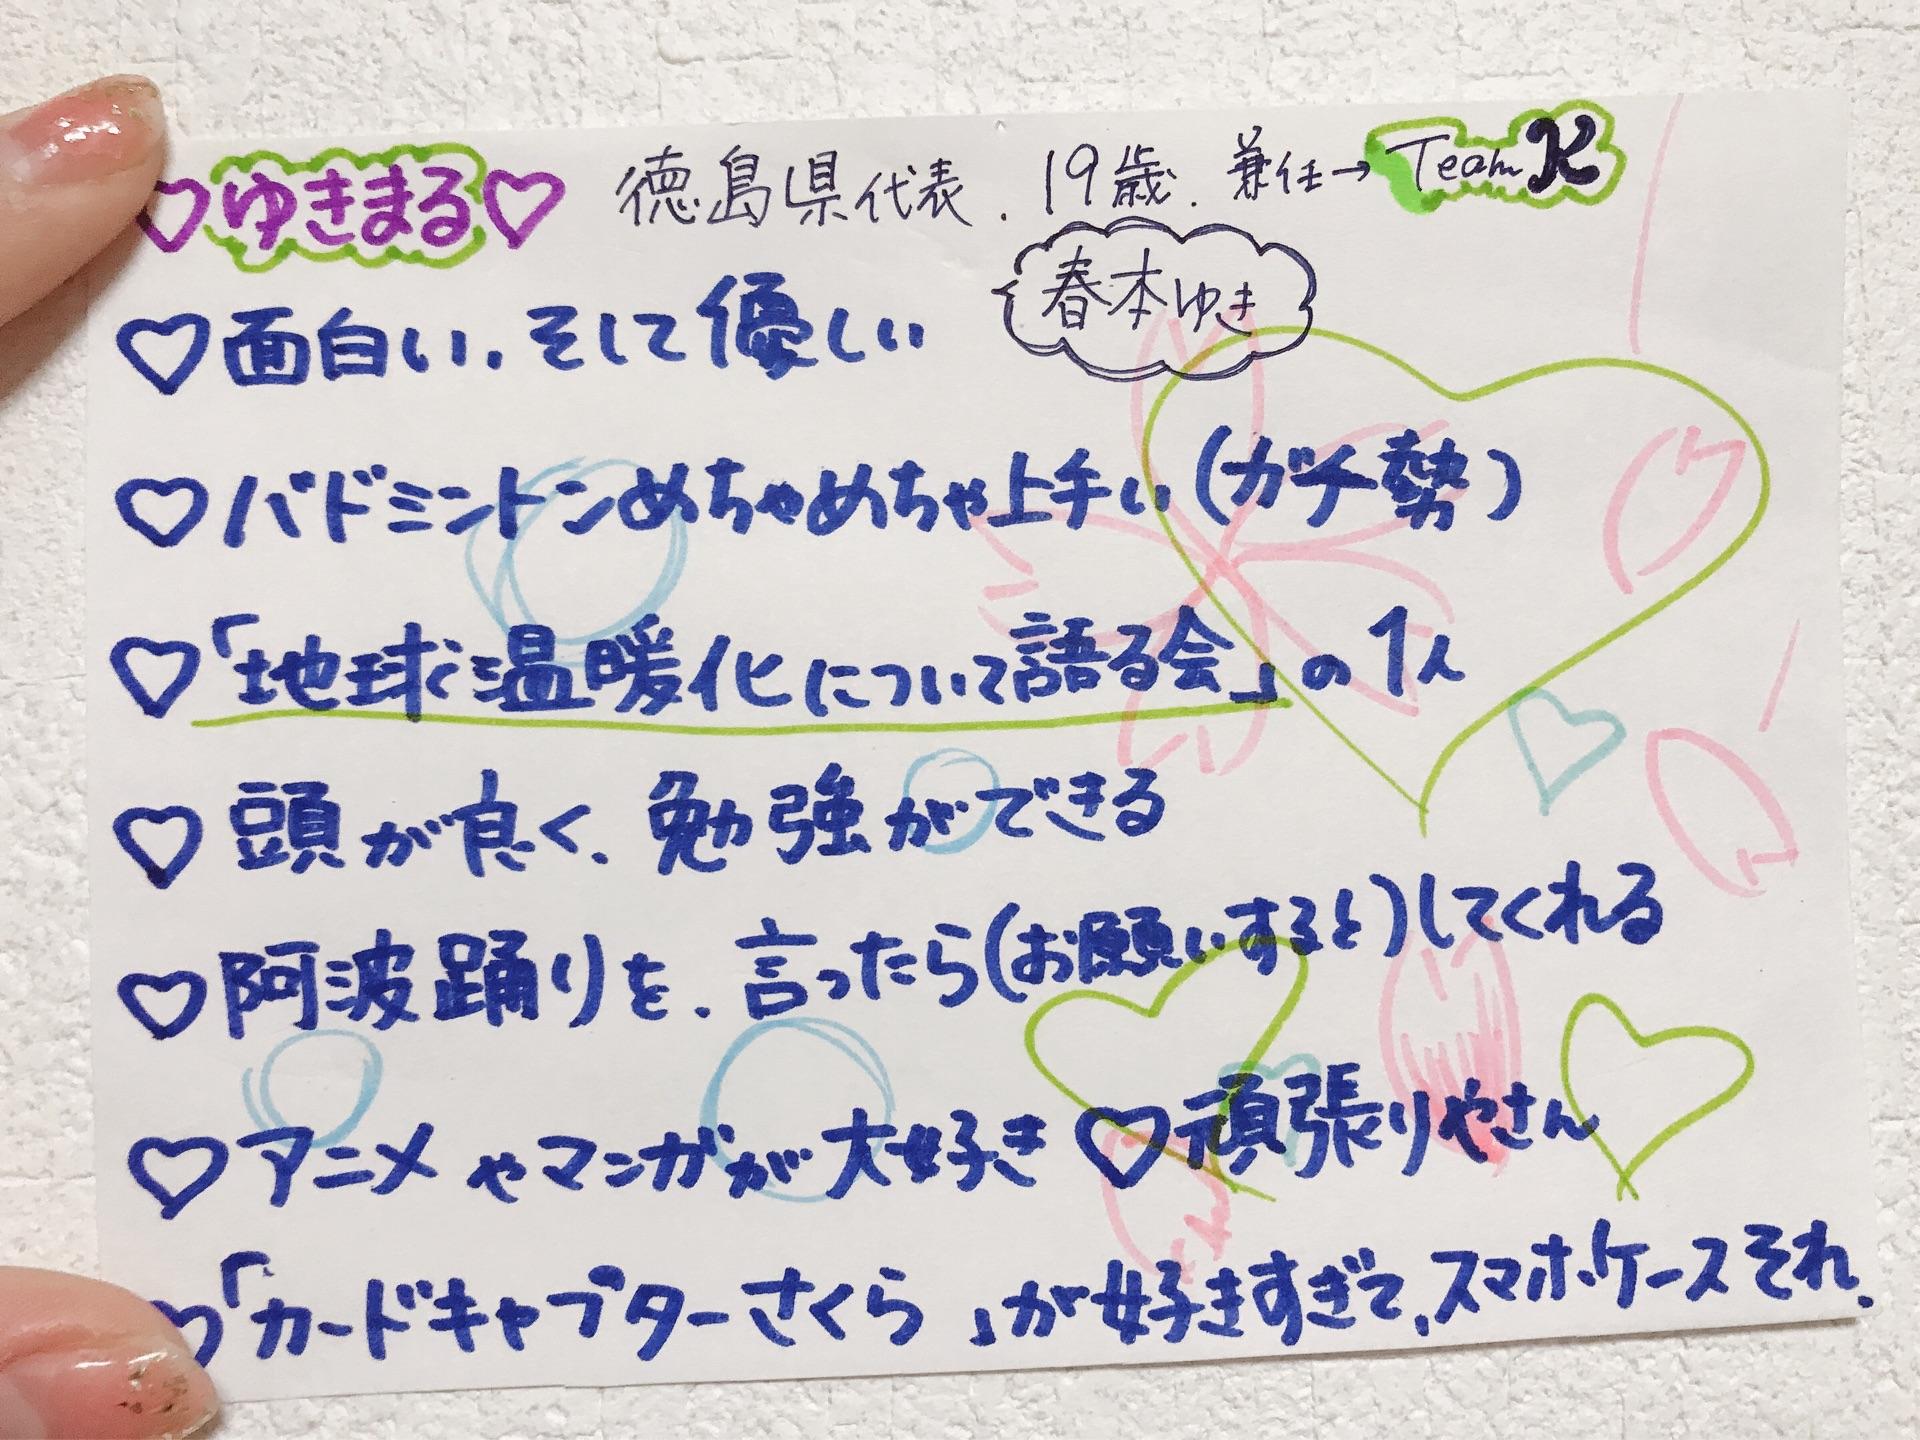 ♡ゆきまる♡ 徳島県代表. 19歳. 兼任→Team K
春本ゆき
♡面白い. そして優しい
♡バドミントンめちゃめちゃ上手い(ガチ勢)
♡「地球温暖化について語る会」の1人
♡頭が良く、勉強ができる
♡阿波踊りを、言ったら(お願いすると)してくれる
♡アニメやマンガが大好き ♡頑張りやさん
♡「カードキャプターさくら」が好きすぎて、スマホケースそれ.